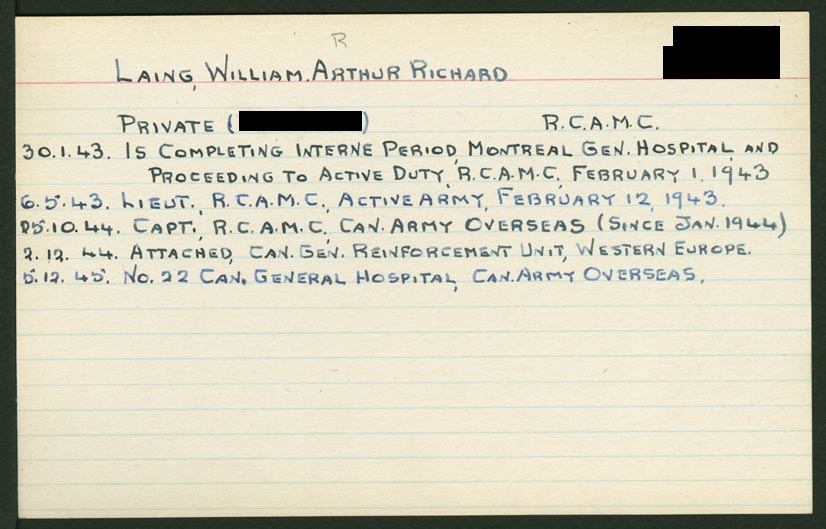 R
LAING, WILLIAM ARTHUR RICHARD
PRIVATE ( ) R.C.A.M.C.
30.1.43. IS COMPLETING INTERNE PERIOD, MONTREAL GEN. HOSPITAL, AND
PROCEEDING TO ACTIVE DUTY, R.C.A.M.C, FEBRUARY 1, 1943
6.5.43. LIEUT., R.C.A.M.C., ACTIVE ARMY, FEBRUARY 12, 1943.
25.10.44. CAPT., R.C.A.M.C, CAN. ARMY OVERSEAS (SINCE JAN. 1944)
2.12.44. ATTACHED, CAN. GEN. REINFORCEMENT UNIT, WESTERN EUROPE.
5.12.45. NO. 22 CAN. GENERAL HOSPITAL, CAN. ARMY OVERSEAS.